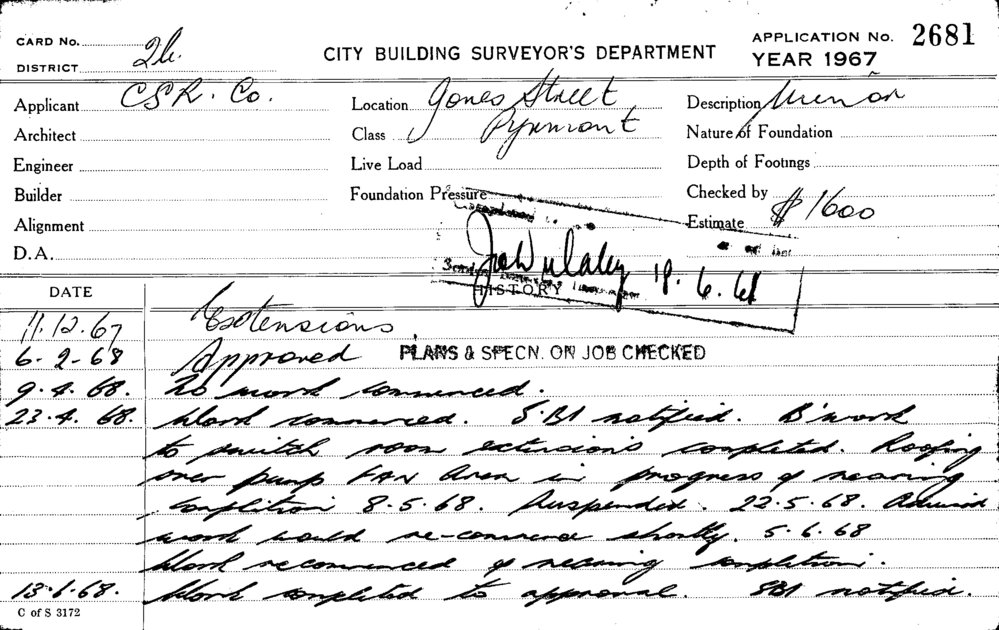 CARD No.
DISTRICT 2b.
CITY BUILDING SURVEYOR'S DEPARTMENT
APPLICATION No. 2681
YEAR 1967
Applicant CSR. Co.
Location Jones Street,
Pyrmont
Description Minor
Architect
Class
Nature of Foundation
Engineer
Live Load
Depth of Footings
Builder
Foundation Pressure
Checked by
Alignment
Estimate $1600
D.A.
18.6.68
DATE
HISTORY
11.12.67 Extensions
6-2-68 Approved PLANS & SPECN. ON JOB CHECKED
9.4.68. No work commenced.
23.4.68. Work commenced. S.B.I notified. B'work
to switch room extensions completed. Roofing
over pump FAN Area in progress & nearing
completion 8.5.68. Suspended. 22.5.68. Advised
work would re-commence shortly. 5.6.68
Work recommenced & nearing completion.
13.6.68. Work completed to approval. SBI notified.
C of S 3172